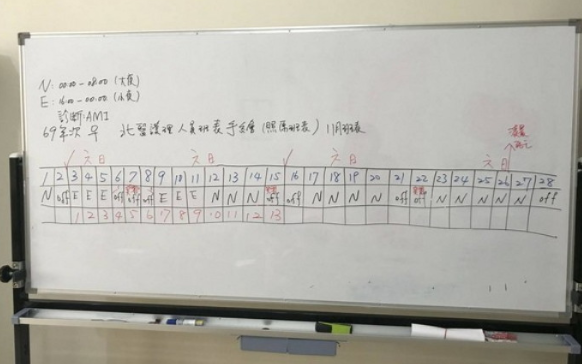 N: 00:00-08:00 (大夜)
E: 16:00-00:00 (小夜)
診斷:AMI
69年次 早 北醫護理人員班表 11月班表
六日 六日 六日 六日
1 2 3 4 5 6 7 8 9 10 11 12 13 14 15 16 17 18 19 20 21 22 23 24 25 26 27 28
N off E E E off off off E E E N N N off off N N N N off off N N N N N off
1 2 3 4 5 6 7 8 9 10 11 12 13